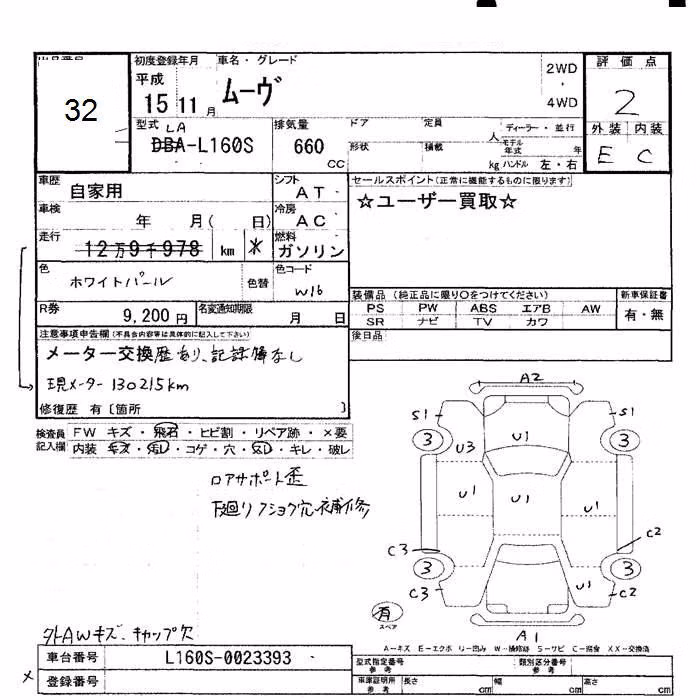 32
初度登録年月 車名・グレード
平成
15 11 月 ムーヴ
2WD
4WD
評価点
2
外装 内装
E C
型式 LA
DBA-L160S
排気量
660 CC
ドア 定員 人
形状 積載 kg
ディーラー・並行
モデル年式 年
ハンドル 左・右
車歴 自家用
シフト AT
車検 年 月( 日)
冷房 AC
走行 12万9千978 km *
燃料 ガソリン
色 ホワイトパール 色替
色コード W16
R券 9,200円
名変通知期限 月 日
セールスポイント(正常に機能するものに限ります)
☆ユーザー買取☆
装備品 (純正品に限り○をつけてください)
PS PW ABS エアB AW
SR ナビ TV カワ
新車保証書
有・無
後日品
注意事項申告欄(不具合内容等は具体的に記入して下さい)
メーター交換歴あり、記録簿なし
現メーター 130215km
修復歴 有〔箇所 〕
検査員記入欄
FW キズ・飛石・ヒビ割・リペア跡・×要
内装 キズ・汚レ・コゲ・穴・スレ・キレ・破レ
ロアサポート歪
下廻りフショク穴補修
A2
S1 S1
3 3
U3 U1
U1 U1 U1
C3 C2
3 3
C3 U1 C2
A1
有
スペア
外AWキズ、キャップ欠
A-キズ E-エクボ U-凹み W-補修跡 S-サビ C-腐食 XX-交換済
車台番号 L160S-0023393
× 登録番号
型式指定番号 参考
類別区分番号 参考
車庫証明用 参考 長さ cm 幅 cm 高さ cm